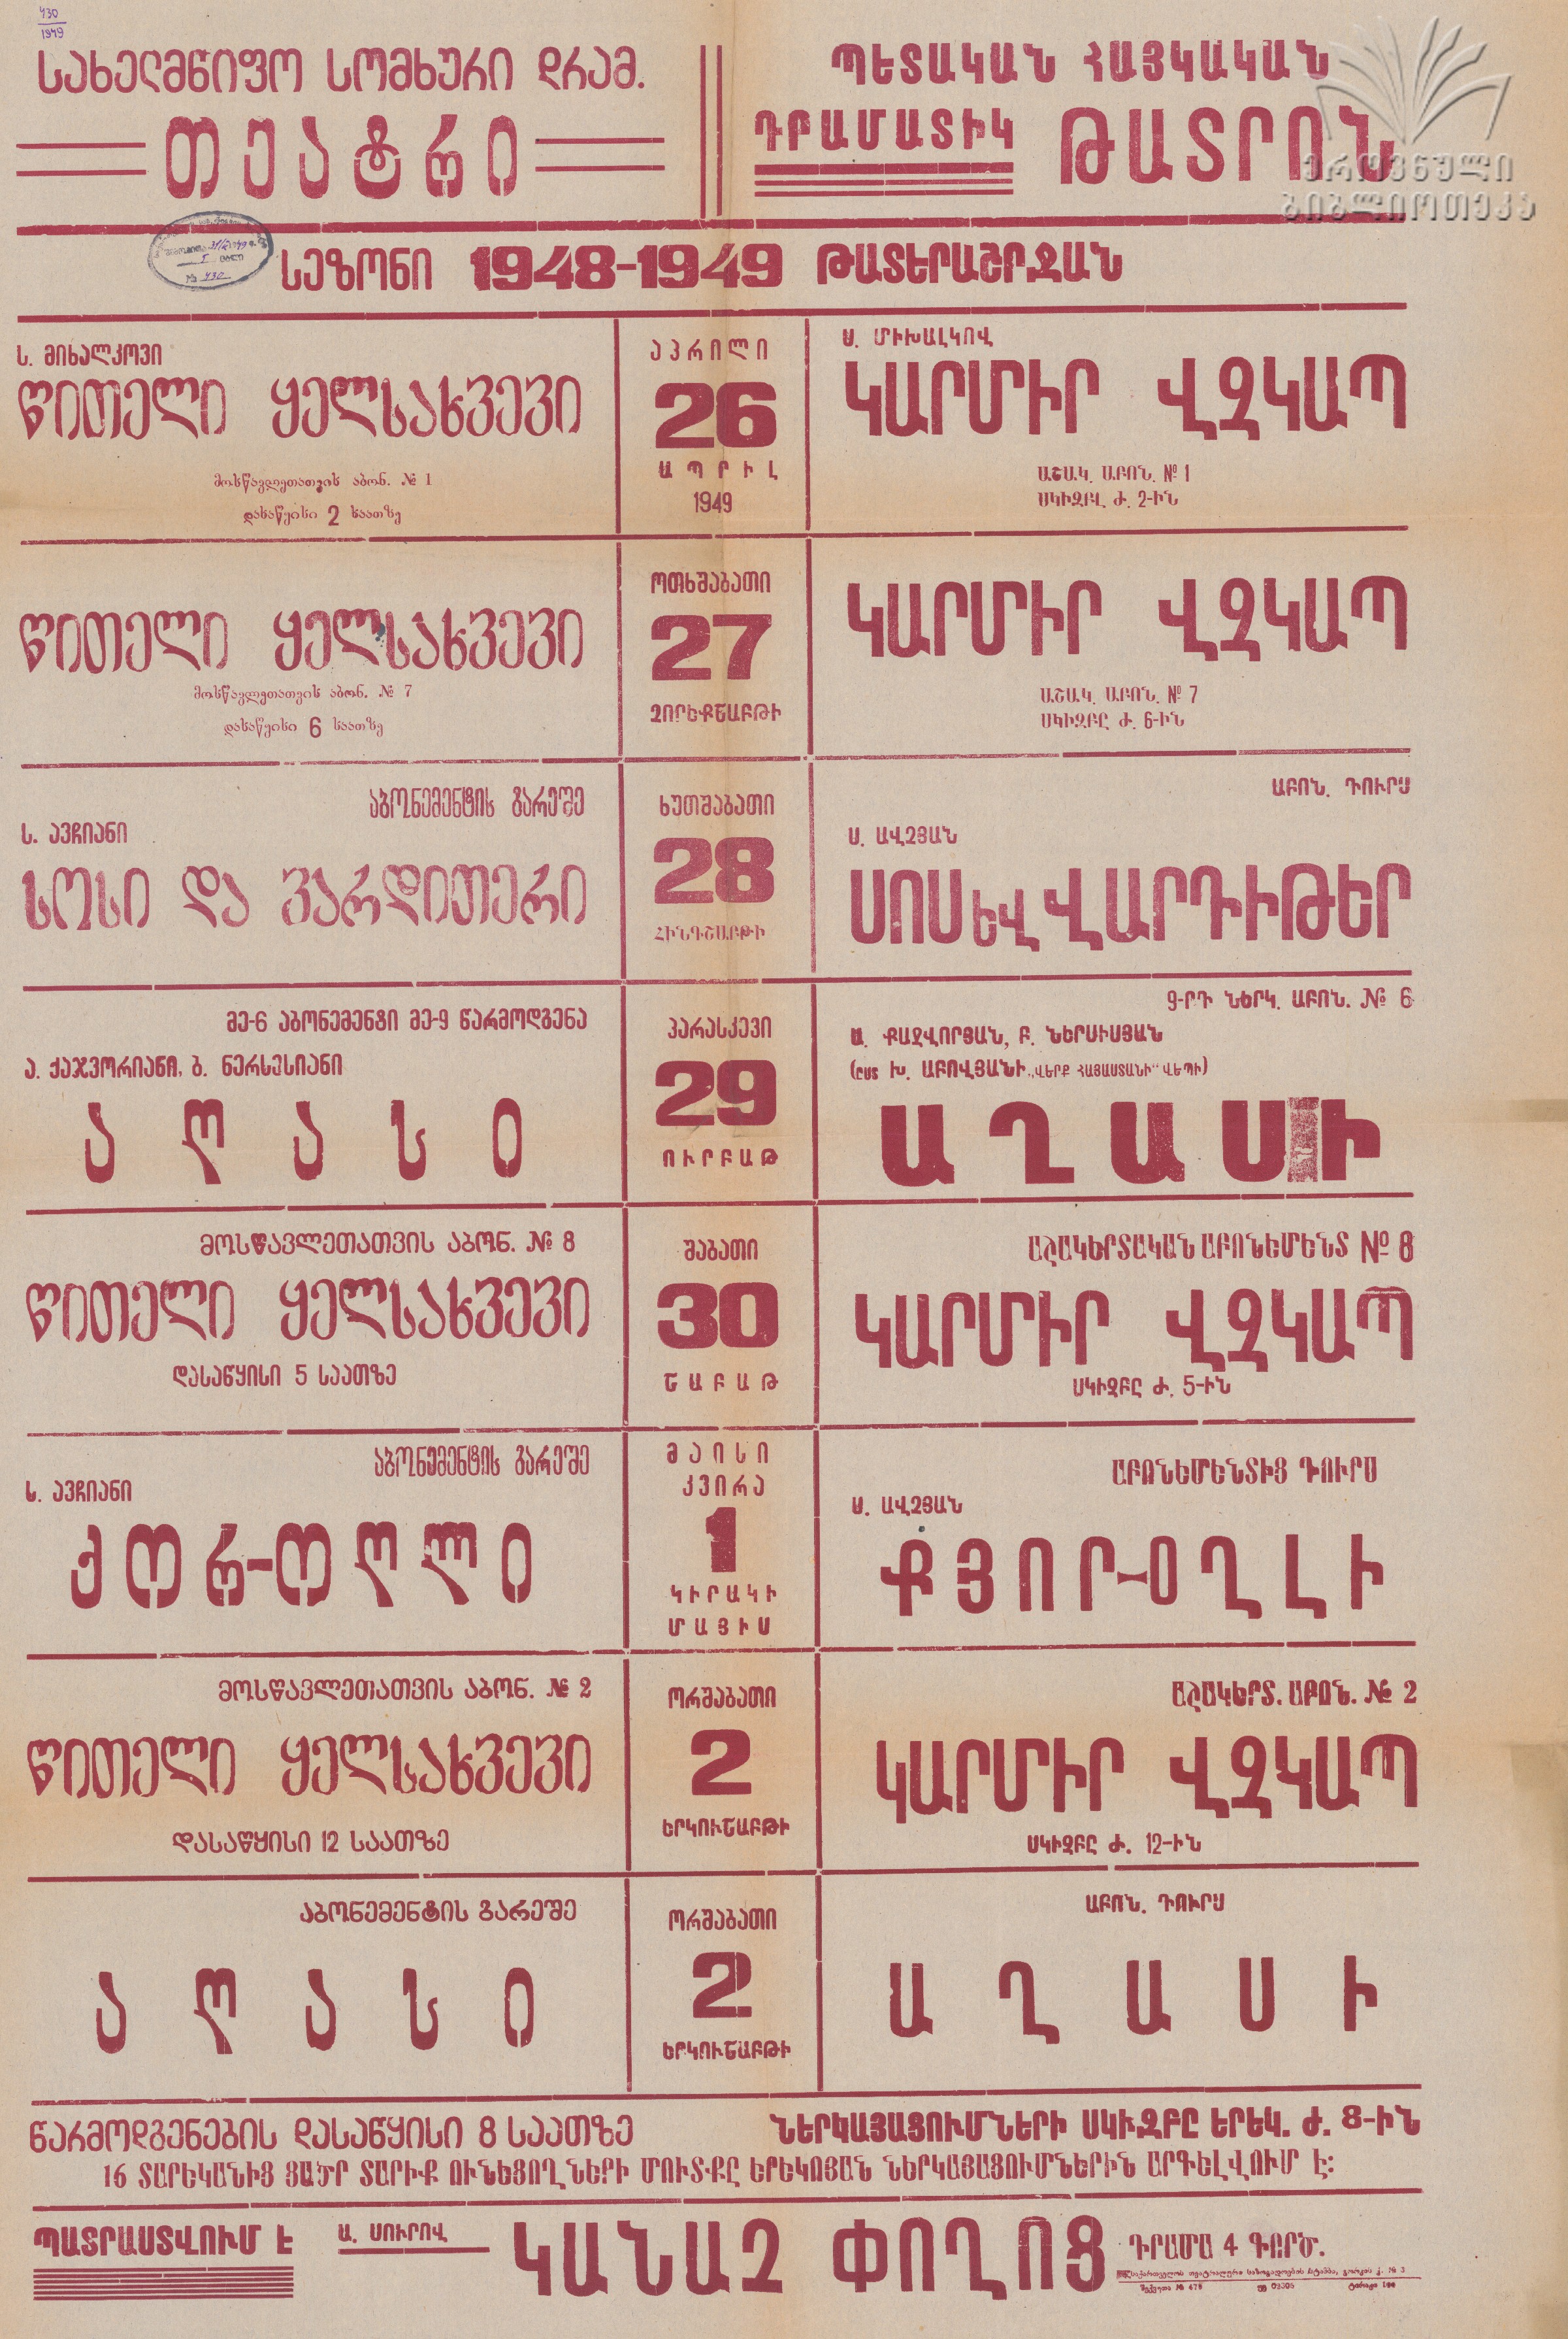 430
1949
სახელმწიფო სომხური დრამ.
თეატრი
ՊԵՏԱԿԱՆ ՀԱՅԿԱԿԱՆ
ԴՐԱՄԱՏԻԿ ԹԱՏՐՈՆ
ეროვნული
ბიბლიოთეკა
სეზონი 1948-1949 ԹԱՏԵՐԱՇՐՋԱՆ
ს. მიხალკოვი
წითელი ყელსახვევი
მოსწავლეთათვის აბონ. № 1
დასაწყისი 2 საათზე
აპრილი
26
ԱՊՐԻԼ
1949
Ս. ՄԻԽԱԼԿՈՎ
ԿԱՐՄԻՐ ՎԶԿԱՊ
ԱՇԱԿ. ԱԲՈՆ. № 1
ՍԿԻԶԲԸ Ժ. 2-ԻՆ
წითელი ყელსახვევი
მოსწავლეთათვის აბონ. № 7
დასაწყისი 6 საათზე
ოთხშაბათი
27
ՉՈՐԵՔՇԱԲԹԻ
ԿԱՐՄԻՐ ՎԶԿԱՊ
ԱՇԱԿ. ԱԲՈՆ. № 7
ՍԿԻԶԲԸ Ժ. 6-ԻՆ
აბონემენტის გარეშე
ს. ავჩიანი
სოსი და ვარდითერი
ხუთშაბათი
28
ՀԻՆԳՇԱԲԹԻ
ԱԲՈՆ. ԴՈՒՐՍ
Ս. ԱՎՉՅԱՆ
ՍՈՍ ԵՎ ՎԱՐԴԻԹԵՐ
მე-6 აბონემენტი მე-9 წარმოდგენა
ა. ქაჯვორიანი, ბ. ნერსესიანი
აღასი
პარასკევი
29
ՈՒՐԲԱԹ
9-ՐԴ ՆԵՐԿ. ԱԲՈՆ. № 6
Ա. ՔԱՋՎՈՐՅԱՆ, Բ. ՆԵՐՍԻՍՅԱՆ
(ԸՍՏ Խ. ԱԲՈՎՅԱՆԻ „ՎԵՐՔ ՀԱՅԱՍՏԱՆԻ“ ՎԵՊԻ)
ԱՂԱՍԻ
მოსწავლეთათვის აბონ. № 8
წითელი ყელსახვევი
დასაწყისი 5 საათზე
შაბათი
30
ՇԱԲԱԹ
ԱՇԱԿԵՐՏԱԿԱՆ ԱԲՈՆԵՄԵՆՏ № 8
ԿԱՐՄԻՐ ՎԶԿԱՊ
ՍԿԻԶԲԸ Ժ. 5-ԻՆ
აბონემენტის გარეშე
ს. ავჩიანი
ქორ-ოღლი
მაისი
კვირა
1
ԿԻՐԱԿԻ
ՄԱՅԻՍ
ԱԲՈՆԵՄԵՆՏԻՑ ԴՈՒՐՍ
Ս. ԱՎՉՅԱՆ
ՔՅՈՐ-ՕՂԼԻ
მოსწავლეთათვის აბონ. № 2
წითელი ყელსახვევი
დასაწყისი 12 საათზე
ორშაბათი
2
ԵՐԿՈՒՇԱԲԹԻ
ԱՇԱԿԵՐՏ. ԱԲՈՆ. № 2
ԿԱՐՄԻՐ ՎԶԿԱՊ
ՍԿԻԶԲԸ Ժ. 12-ԻՆ
აბონემენტის გარეშე
აღასი
ორშაბათი
2
ԵՐԿՈՒՇԱԲԹԻ
ԱԲՈՆ. ԴՈՒՐՍ
ԱՂԱՍԻ
წარმოდგენების დასაწყისი 8 საათზე
ՆԵՐԿԱՅԱՑՈՒՄՆԵՐԻ ՍԿԻԶԲԸ ԵՐԵԿ. Ժ. 8-ԻՆ
16 ՏԱՐԵԿԱՆԻՑ ՑԱԾՐ ՏԱՐԻՔ ՈՒՆԵՑՈՂՆԵՐԻ ՄՈՒՏՔԸ ԵՐԵԿՈՅԱՆ ՆԵՐԿԱՅԱՑՈՒՄՆԵՐԻՆ ԱՐԳԵԼՎՈՒՄ Է:
ՊԱՏՐԱՍՏՎՈՒՄ Է
Ա. ՍՈՒՐՈՎ
ԿԱՆԱՉ ՓՈՂՈՑ
ԴՐԱՄԱ 4 ԳՈՐԾ.
საქართველოს თეატრალური საზოგადოების სტამბა, გორკის ქ. № 3
შეკვეთა № 478 უე 02305 ტირაჟი 100